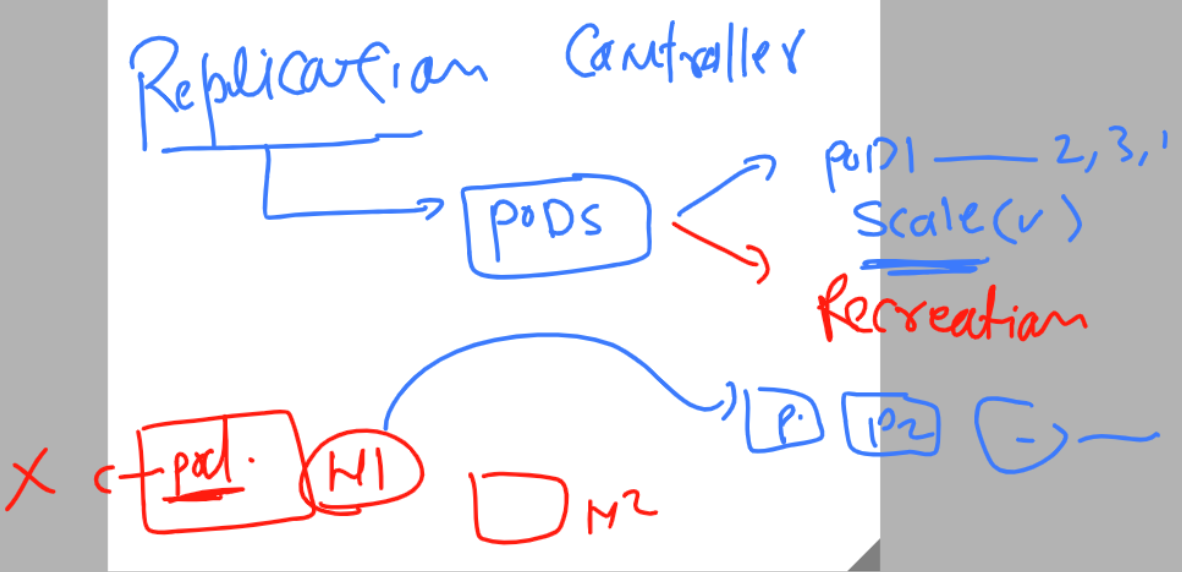 Replication Controller
PODS
POD1 — 2, 3, 1
Scale(v)
Recreation
P. P2
X pod. N1
M2